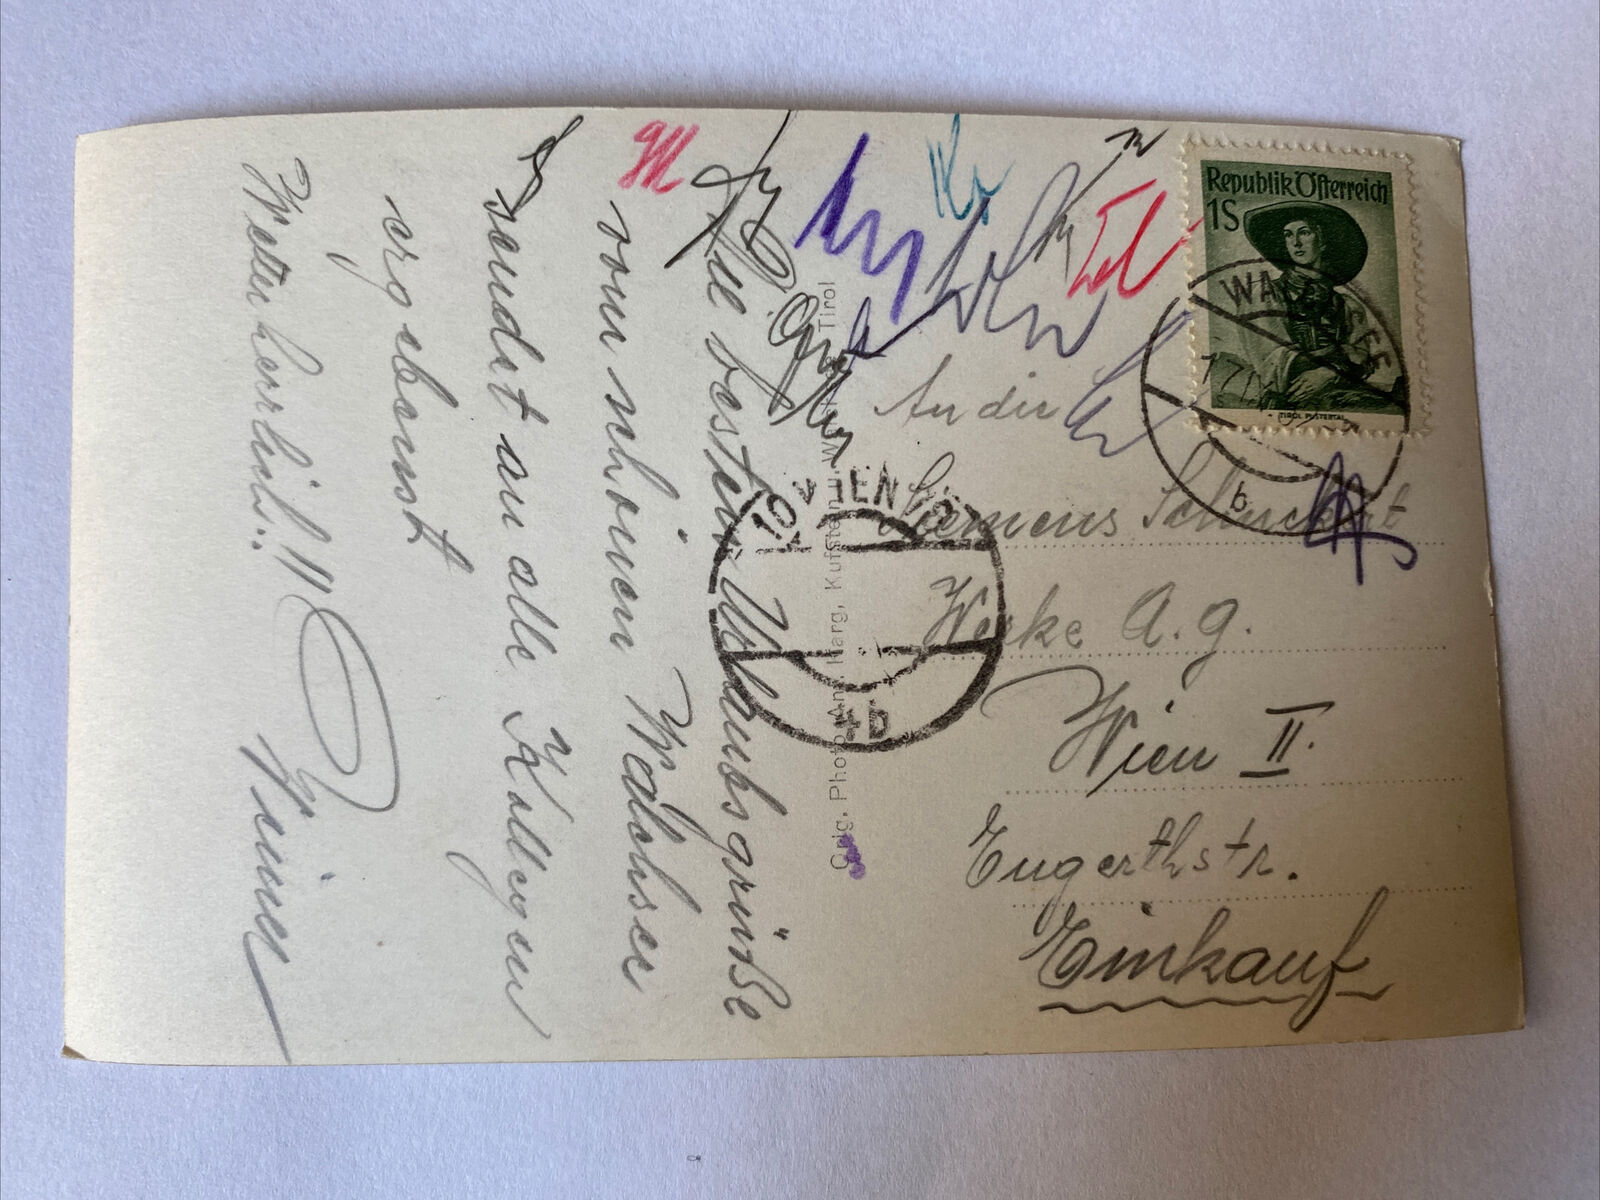 Alle besten Urlaubsgrüße
vom schönen Walchsee
sendet an alle Kollegen
ergebenst
Wetter herrlich..!!
Orig. Photo Ant. Karg, Kufstein u. Wörgl, Tirol
Republik Österreich
1S
TIROL PUSTERTAL
WALCHSEE
b
An die
Siemens Schuckert
Werke A.G.
Wien II.
Engerthstr.
Einkauf
WIEN
10
4b